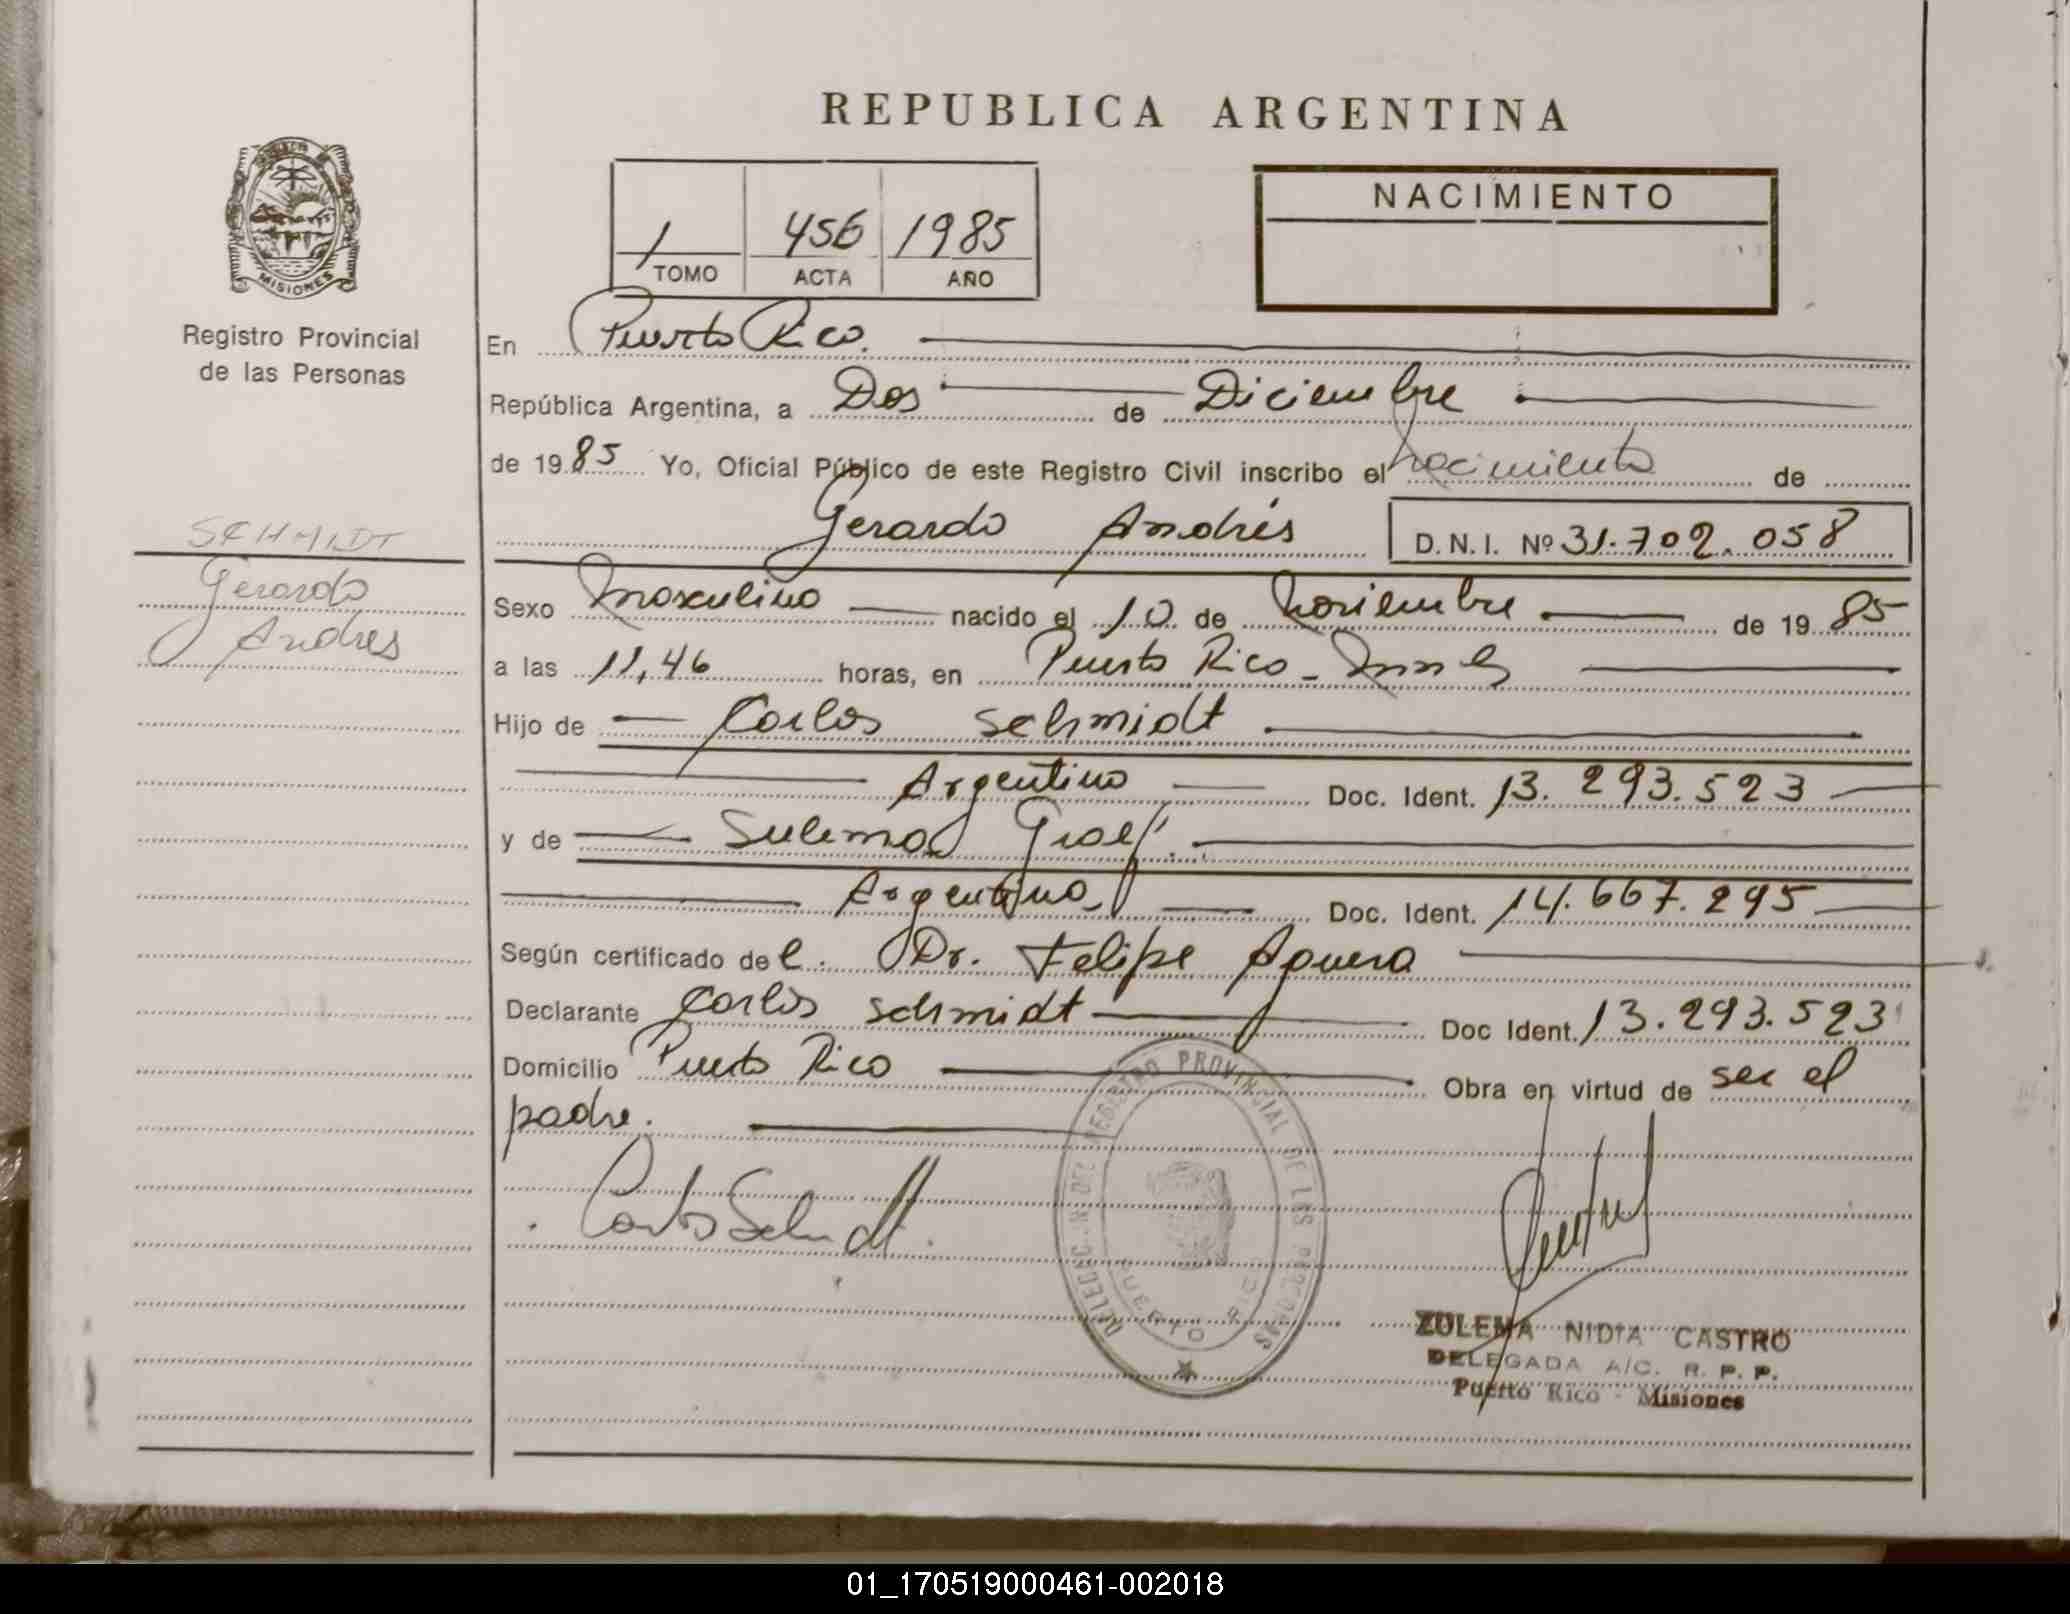 REPUBLICA ARGENTINA
NACIMIENTO
1 456 1985
TOMO ACTA AÑO
MISIONES
Registro Provincial
de las Personas
En Puerto Rico.
República Argentina, a Dos de Diciembre
de 1985 Yo, Oficial Público de este Registro Civil inscribo el nacimiento de
Gerardo Andrés D.N.I. Nº 31.702.058
SCHMIDT
Gerardo
Andres
Sexo Masculino nacido el 10 de Noviembre de 1985
a las 11,46 horas, en Puerto Rico - Mnes
Hijo de Carlos Schmidt
Argentino Doc. Ident. 13.293.523
y de Sulema
Argentina Doc. Ident. 14.667.295
Según certificado del. Dr. Felipe Aguera
Declarante Carlos Schmidt Doc Ident. 13.293.523
Domicilio Puerto Rico Obra en virtud de ser el
padre.
Carlos Schmidt.
DELEGAC. Nº DEL REGISTRO PROVINCIAL DE LAS PERSONAS
PUERTO RICO
ZULEMA NIDIA CASTRO
DELEGADA A/C. R. P. P.
Puerto Rico - Misiones
01_170519000461-002018